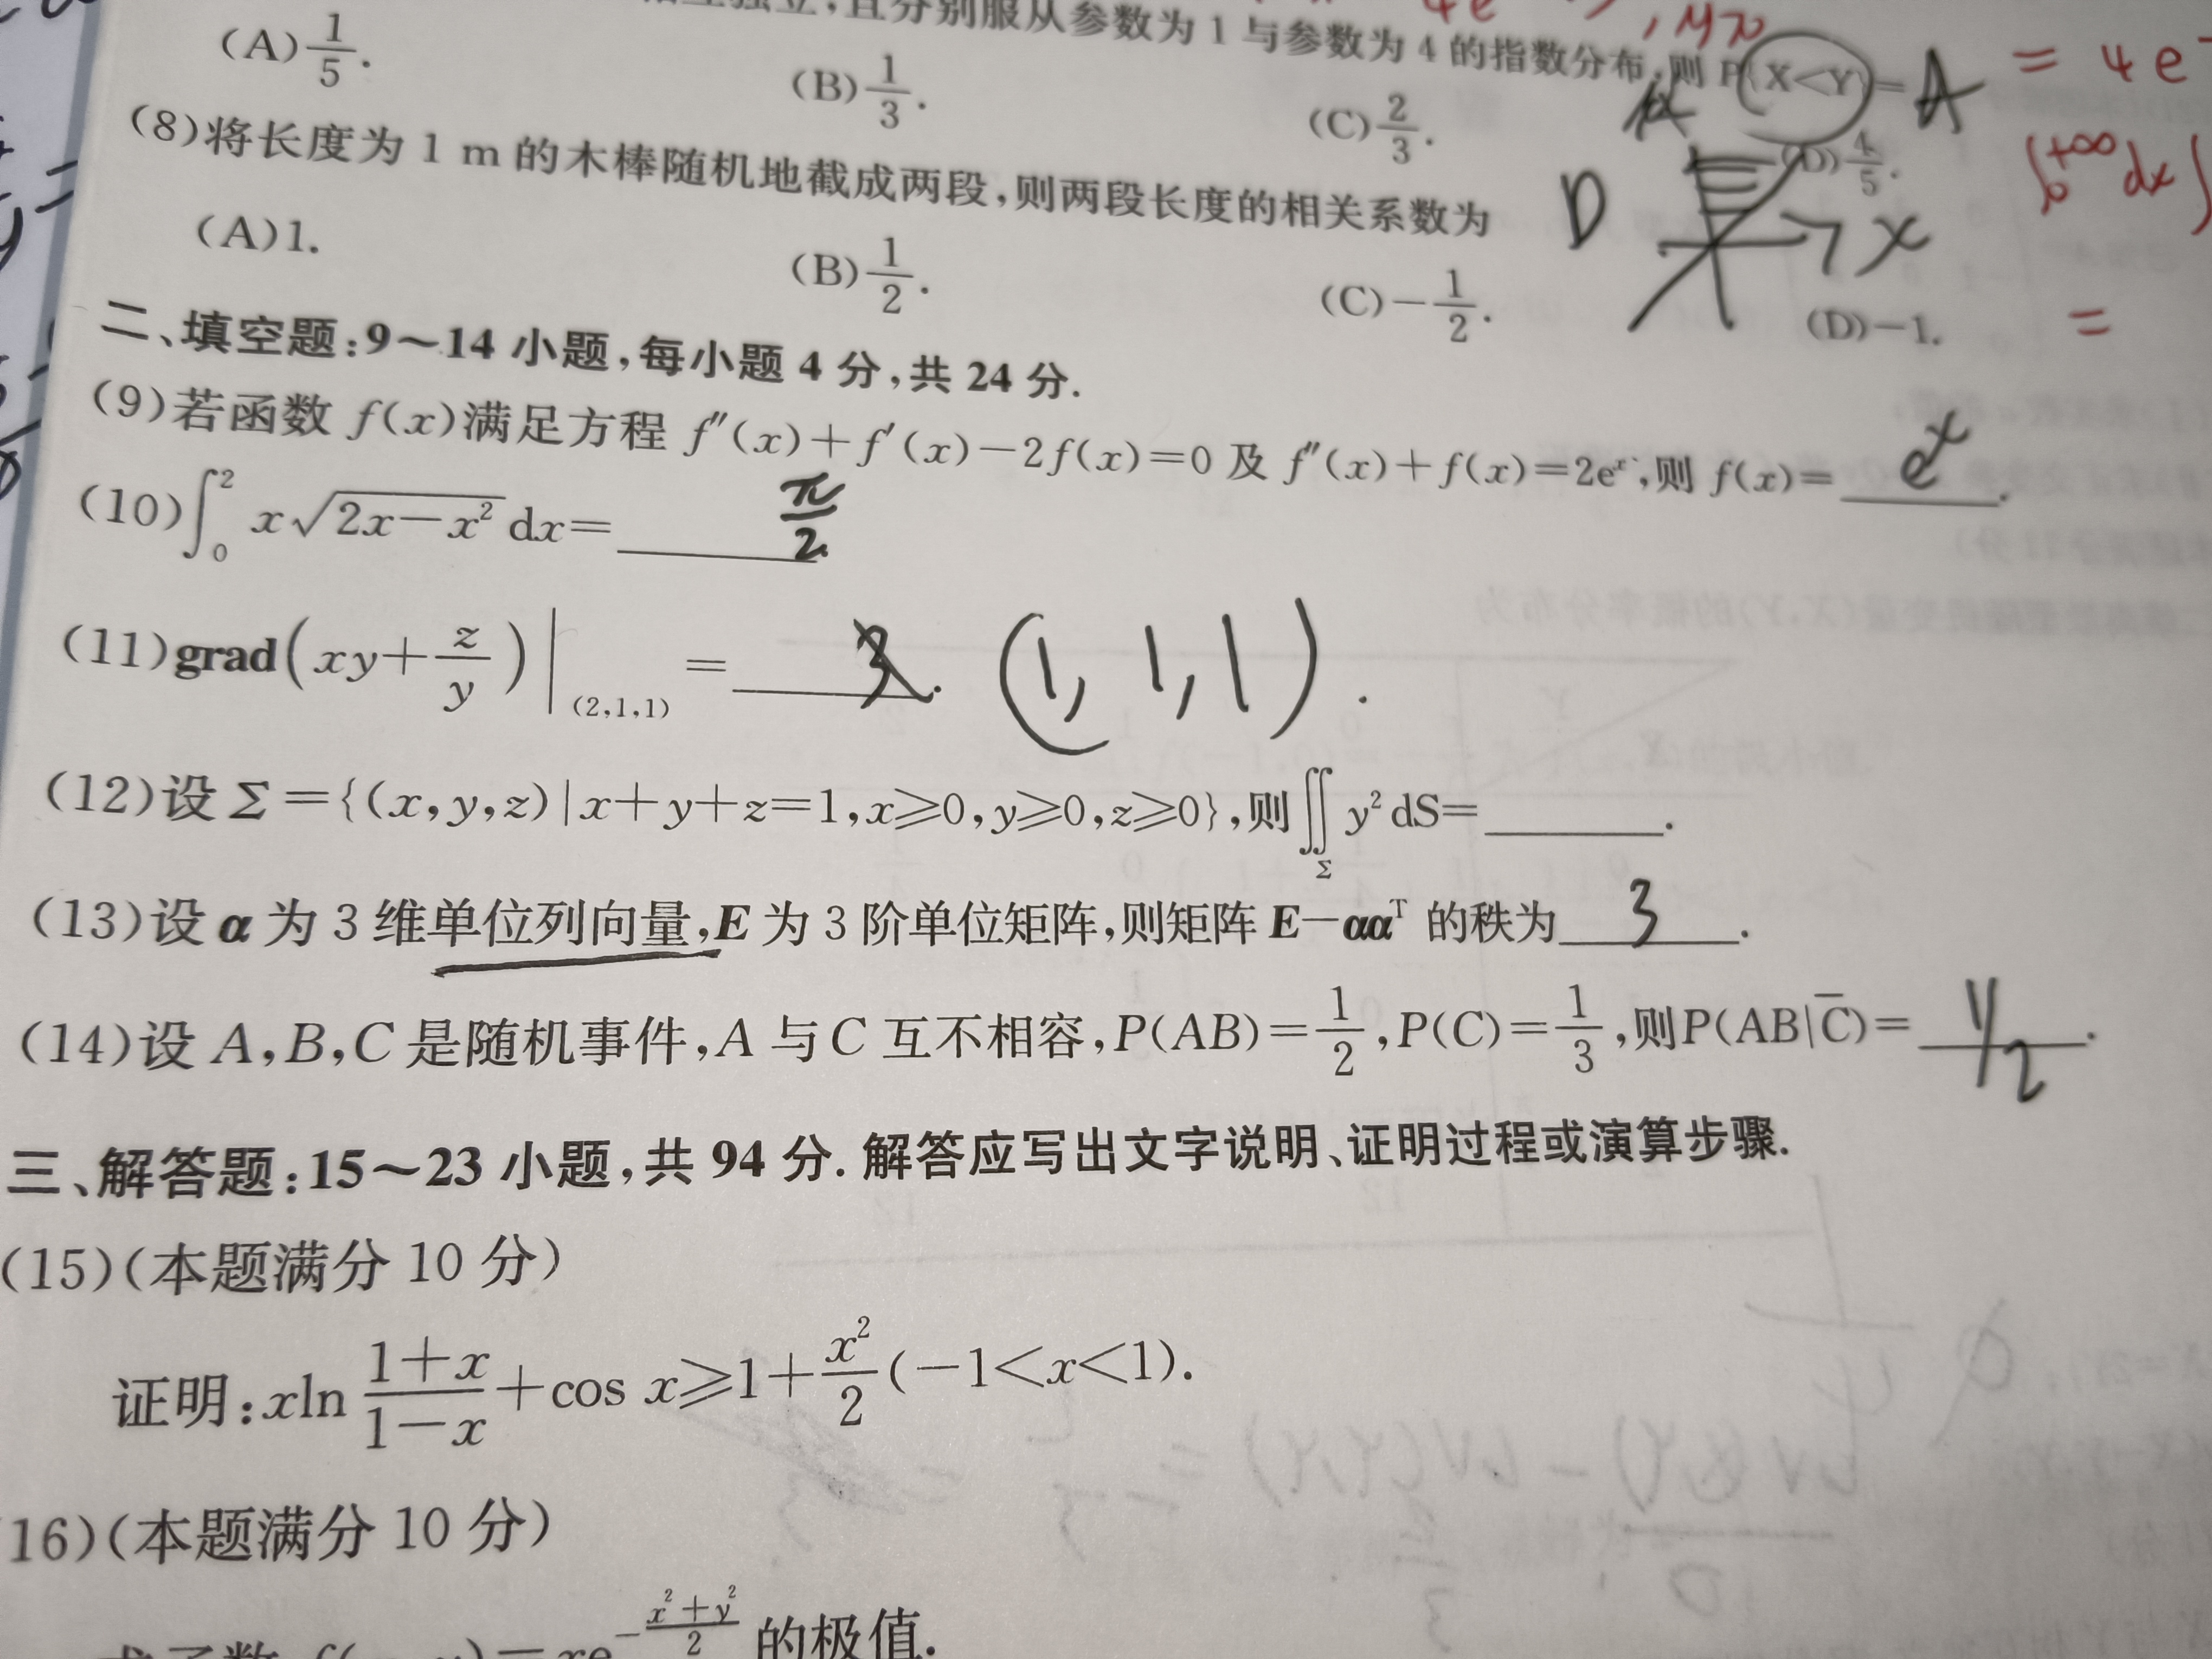 相互独立,且分别服从参数为1与参数为4的指数分布,则 P{X<Y}= A = 4e
(A) 1/5. (B) 1/3. (C) 2/3. (D) 4/5.
(8)将长度为 1 m 的木棒随机地截成两段,则两段长度的相关系数为 D
(A)1. (B) 1/2. (C) -1/2. (D)-1.
二、填空题:9~14 小题,每小题 4 分,共 24 分.
(9)若函数 f(x)满足方程 f″(x)+f′(x)-2f(x)=0 及 f″(x)+f(x)=2eˣ,则 f(x)= eˣ .
(10)∫₀² x√(2x-x²) dx= π/2
(11)grad(xy+z/y)|(2,1,1) = 3. (1,1,1).
(12)设 Σ={(x,y,z)|x+y+z=1,x≥0,y≥0,z≥0},则∬_Σ y² dS=______.
(13)设 α 为 3 维单位列向量,E 为 3 阶单位矩阵,则矩阵 E-ααᵀ 的秩为 3 .
(14)设 A,B,C 是随机事件,A 与 C 互不相容,P(AB)=1/2,P(C)=1/3,则P(AB|C̅)= 1/2 .
三、解答题:15~23 小题,共 94 分. 解答应写出文字说明、证明过程或演算步骤.
(15)(本题满分 10 分)
证明:xln (1+x)/(1-x)+cos x≥1+x²/2(-1<x<1).
16)(本题满分 10 分)
求函数 f(x,y)=xe^(-(x²+y²)/2) 的极值.